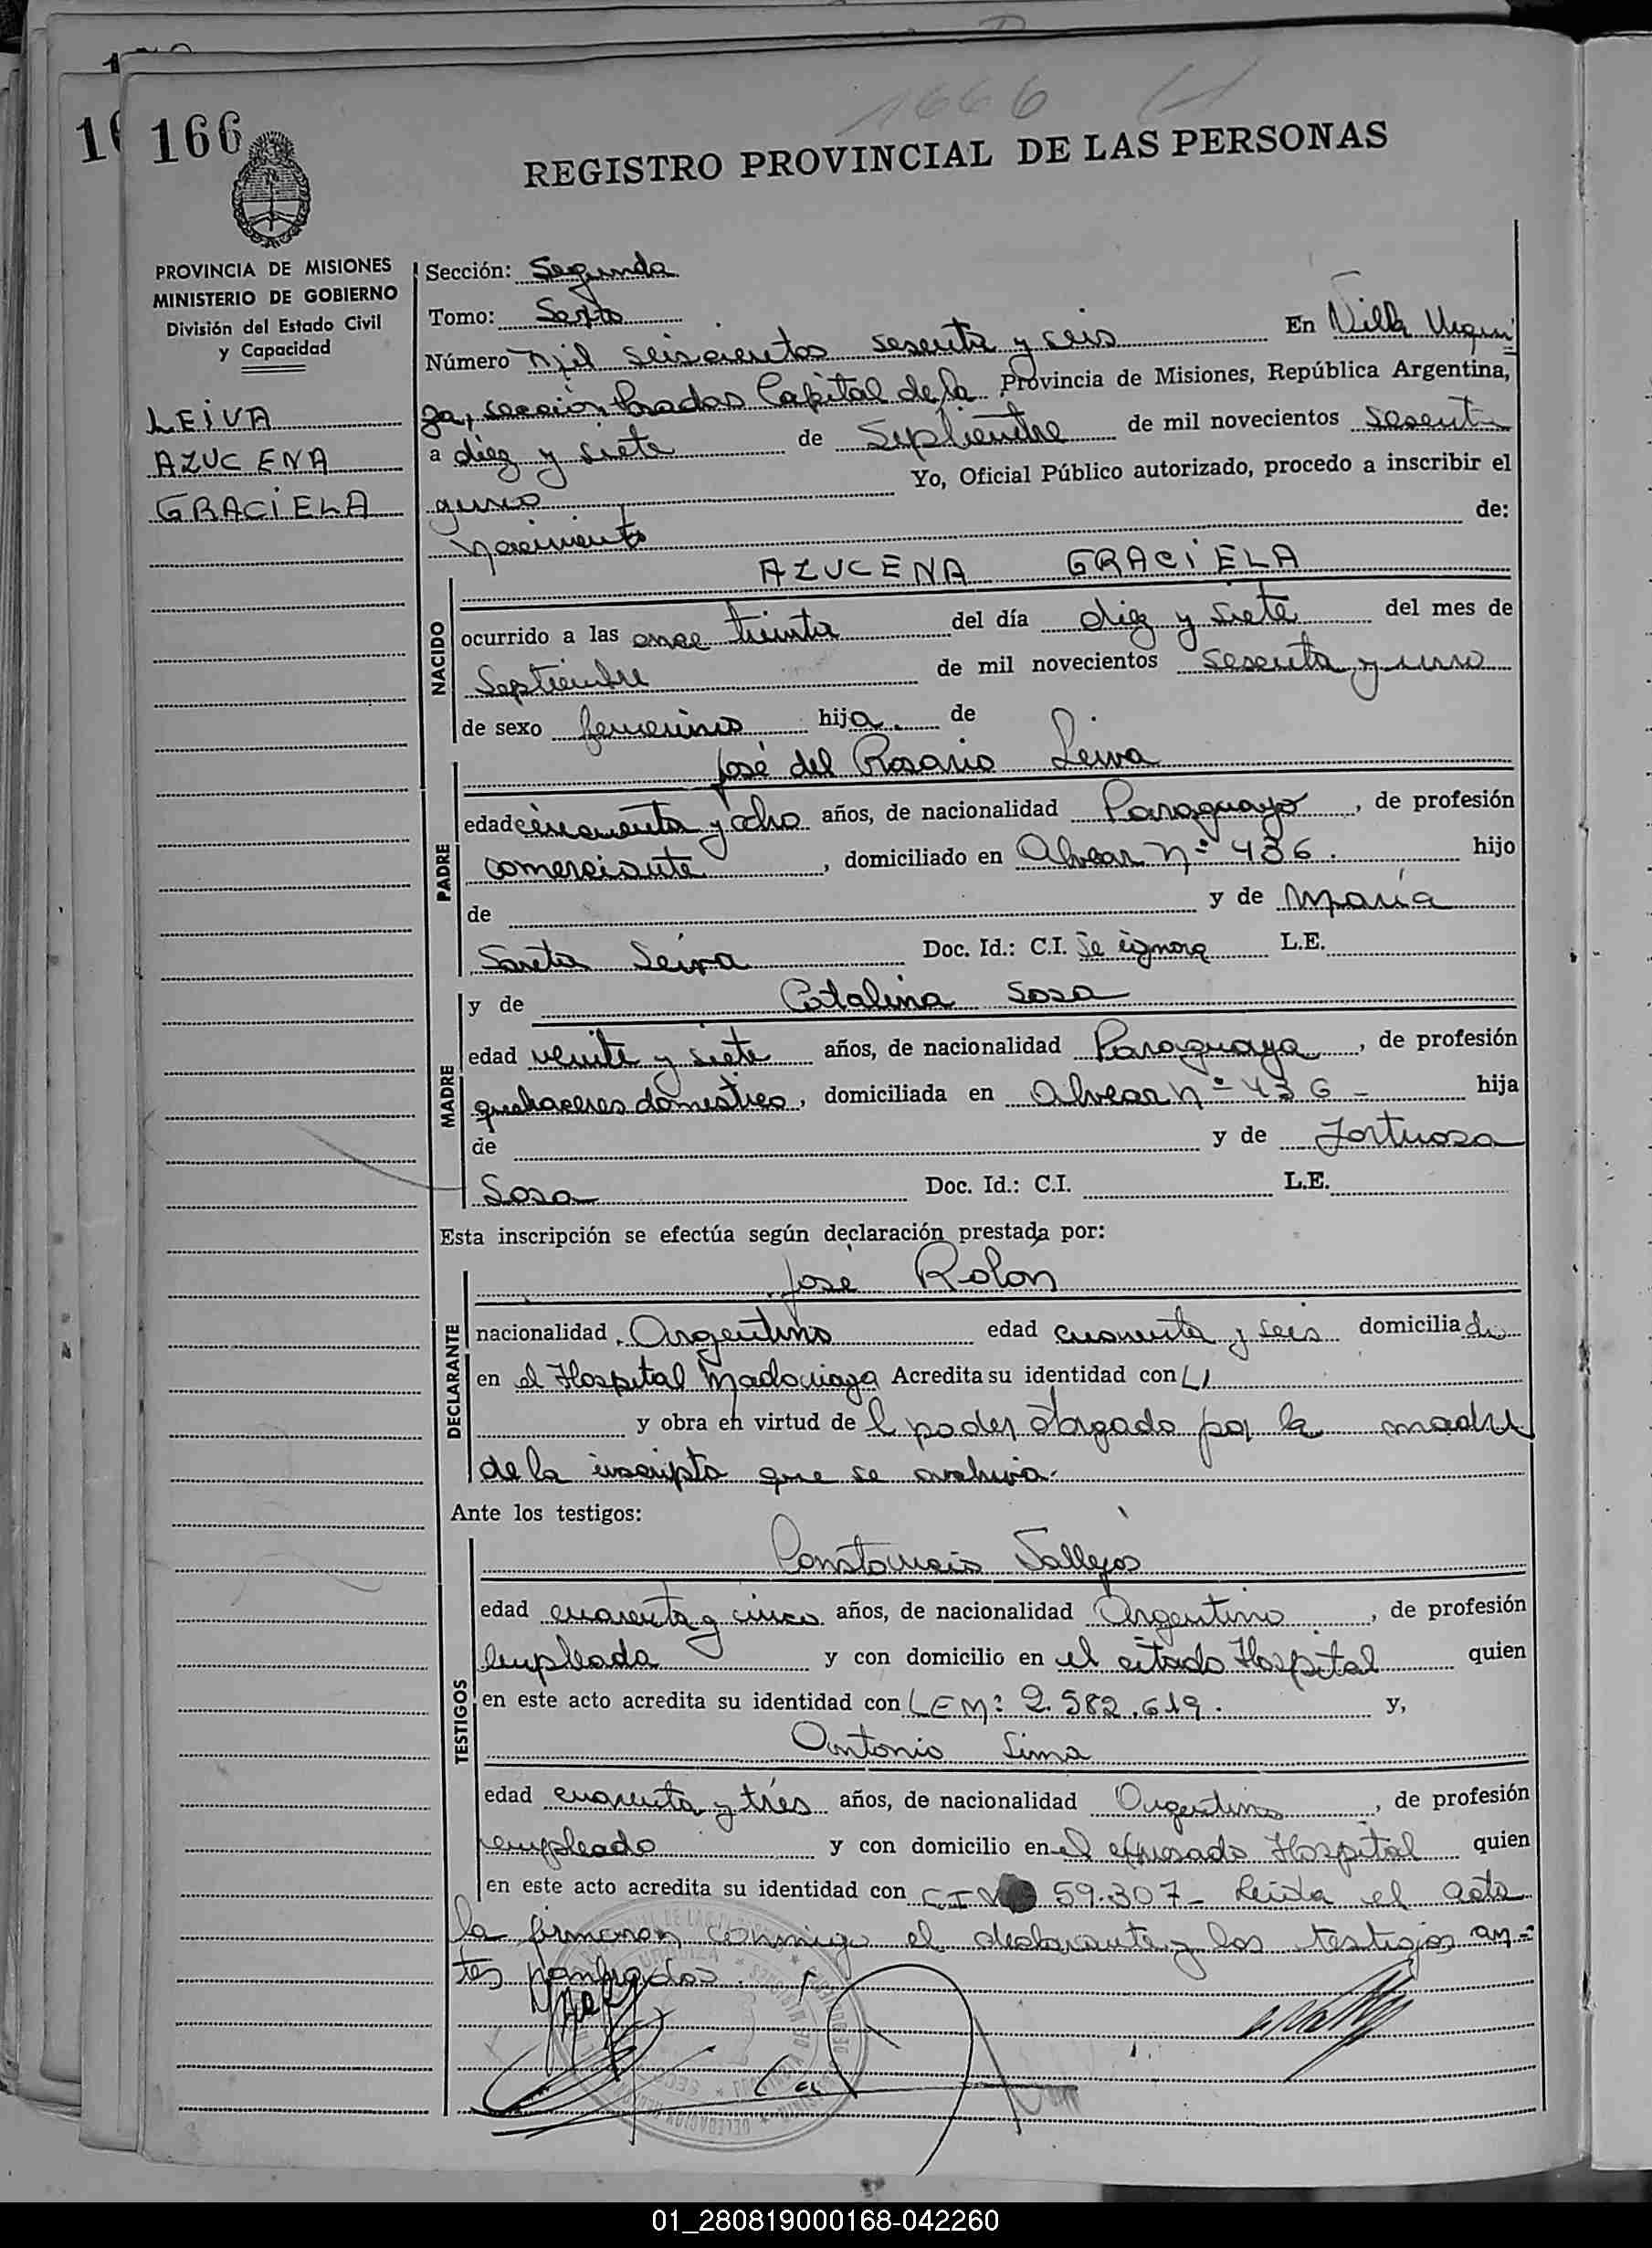 1666
166
REGISTRO PROVINCIAL DE LAS PERSONAS
PROVINCIA DE MISIONES
MINISTERIO DE GOBIERNO
División del Estado Civil
y Capacidad
LEIVA
AZUCENA
GRACIELA
Sección: Segunda
Tomo: Sexto
Número Mil seiscientos sesenta y seis En Villa Urqui
za, sección Posadas Capital de la Provincia de Misiones, República Argentina,
a diez y siete de Septiembre de mil novecientos sesenta
y uno Yo, Oficial Público autorizado, procedo a inscribir el
Nacimiento de:
NACIDO
AZUCENA GRACIELA
ocurrido a las once treinta del día diez y siete del mes de
Septiembre de mil novecientos sesenta y uno
de sexo femenino hija de
PADRE
José del Rosario Leiva
edad cincuenta y ocho años, de nacionalidad Paraguayo, de profesión
comerciante, domiciliado en Alvear Nº 436. hijo
de y de María
Santa Leiva Doc. Id.: C.I. Se ignora L.E.
MADRE
y de Catalina Sosa
edad veinte y siete años, de nacionalidad Paraguaya, de profesión
quehaceres domestico, domiciliada en Alvear Nº 436 - hija
de y de Fortuosa
Sosa Doc. Id.: C.I. L.E.
Esta inscripción se efectúa según declaración prestada por:
DECLARANTE
José Rolon
nacionalidad Argentino edad cuarenta y seis domiciliado
en el Hospital Madariaga Acredita su identidad con
y obra en virtud de l poder otorgado por la madre
de la inscripta que se archiva.
Ante los testigos:
TESTIGOS
Constancio Vallejos
edad cuarenta y cinco años, de nacionalidad Argentino, de profesión
empleado y con domicilio en el citado Hospital quien
en este acto acredita su identidad con LEM: 2.582.619. y,
Antonio Lima
edad cuarenta y tres años, de nacionalidad Argentino, de profesión
empleado y con domicilio en el expresado Hospital quien
en este acto acredita su identidad con CIN 59.307- Leida el acta
la firmaron conmigo el declarante y los testigos an-
tes nombrados.
01_280819000168-042260